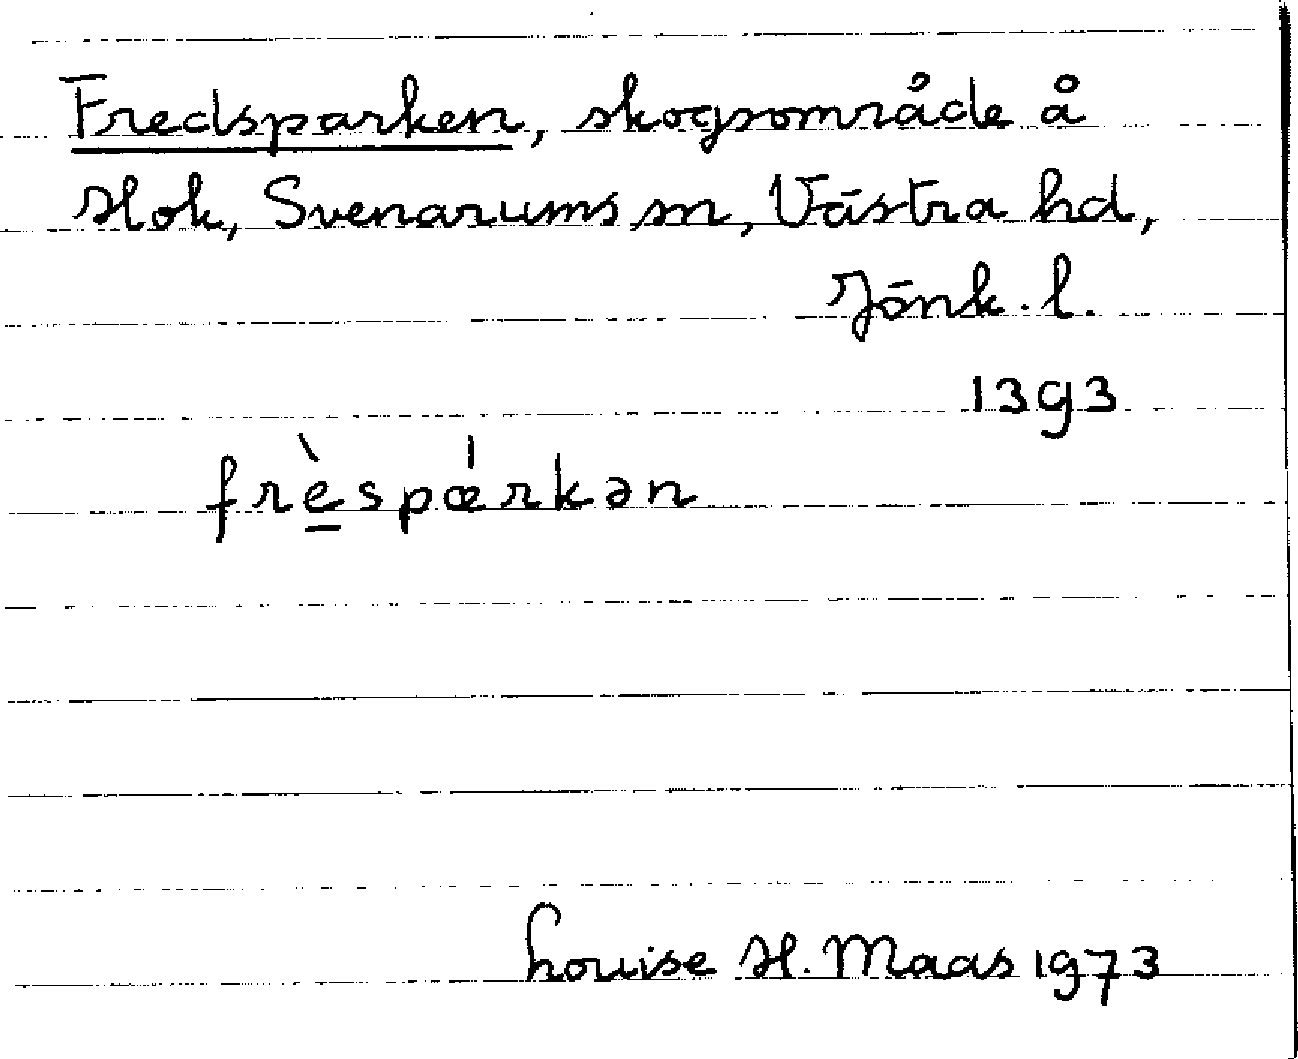 Fredsparken, skogsområde å
Hok, Svenarums sn, Västra hd,
Jönk. l.
1393
frèspárkən
Louise H. Maas 1973